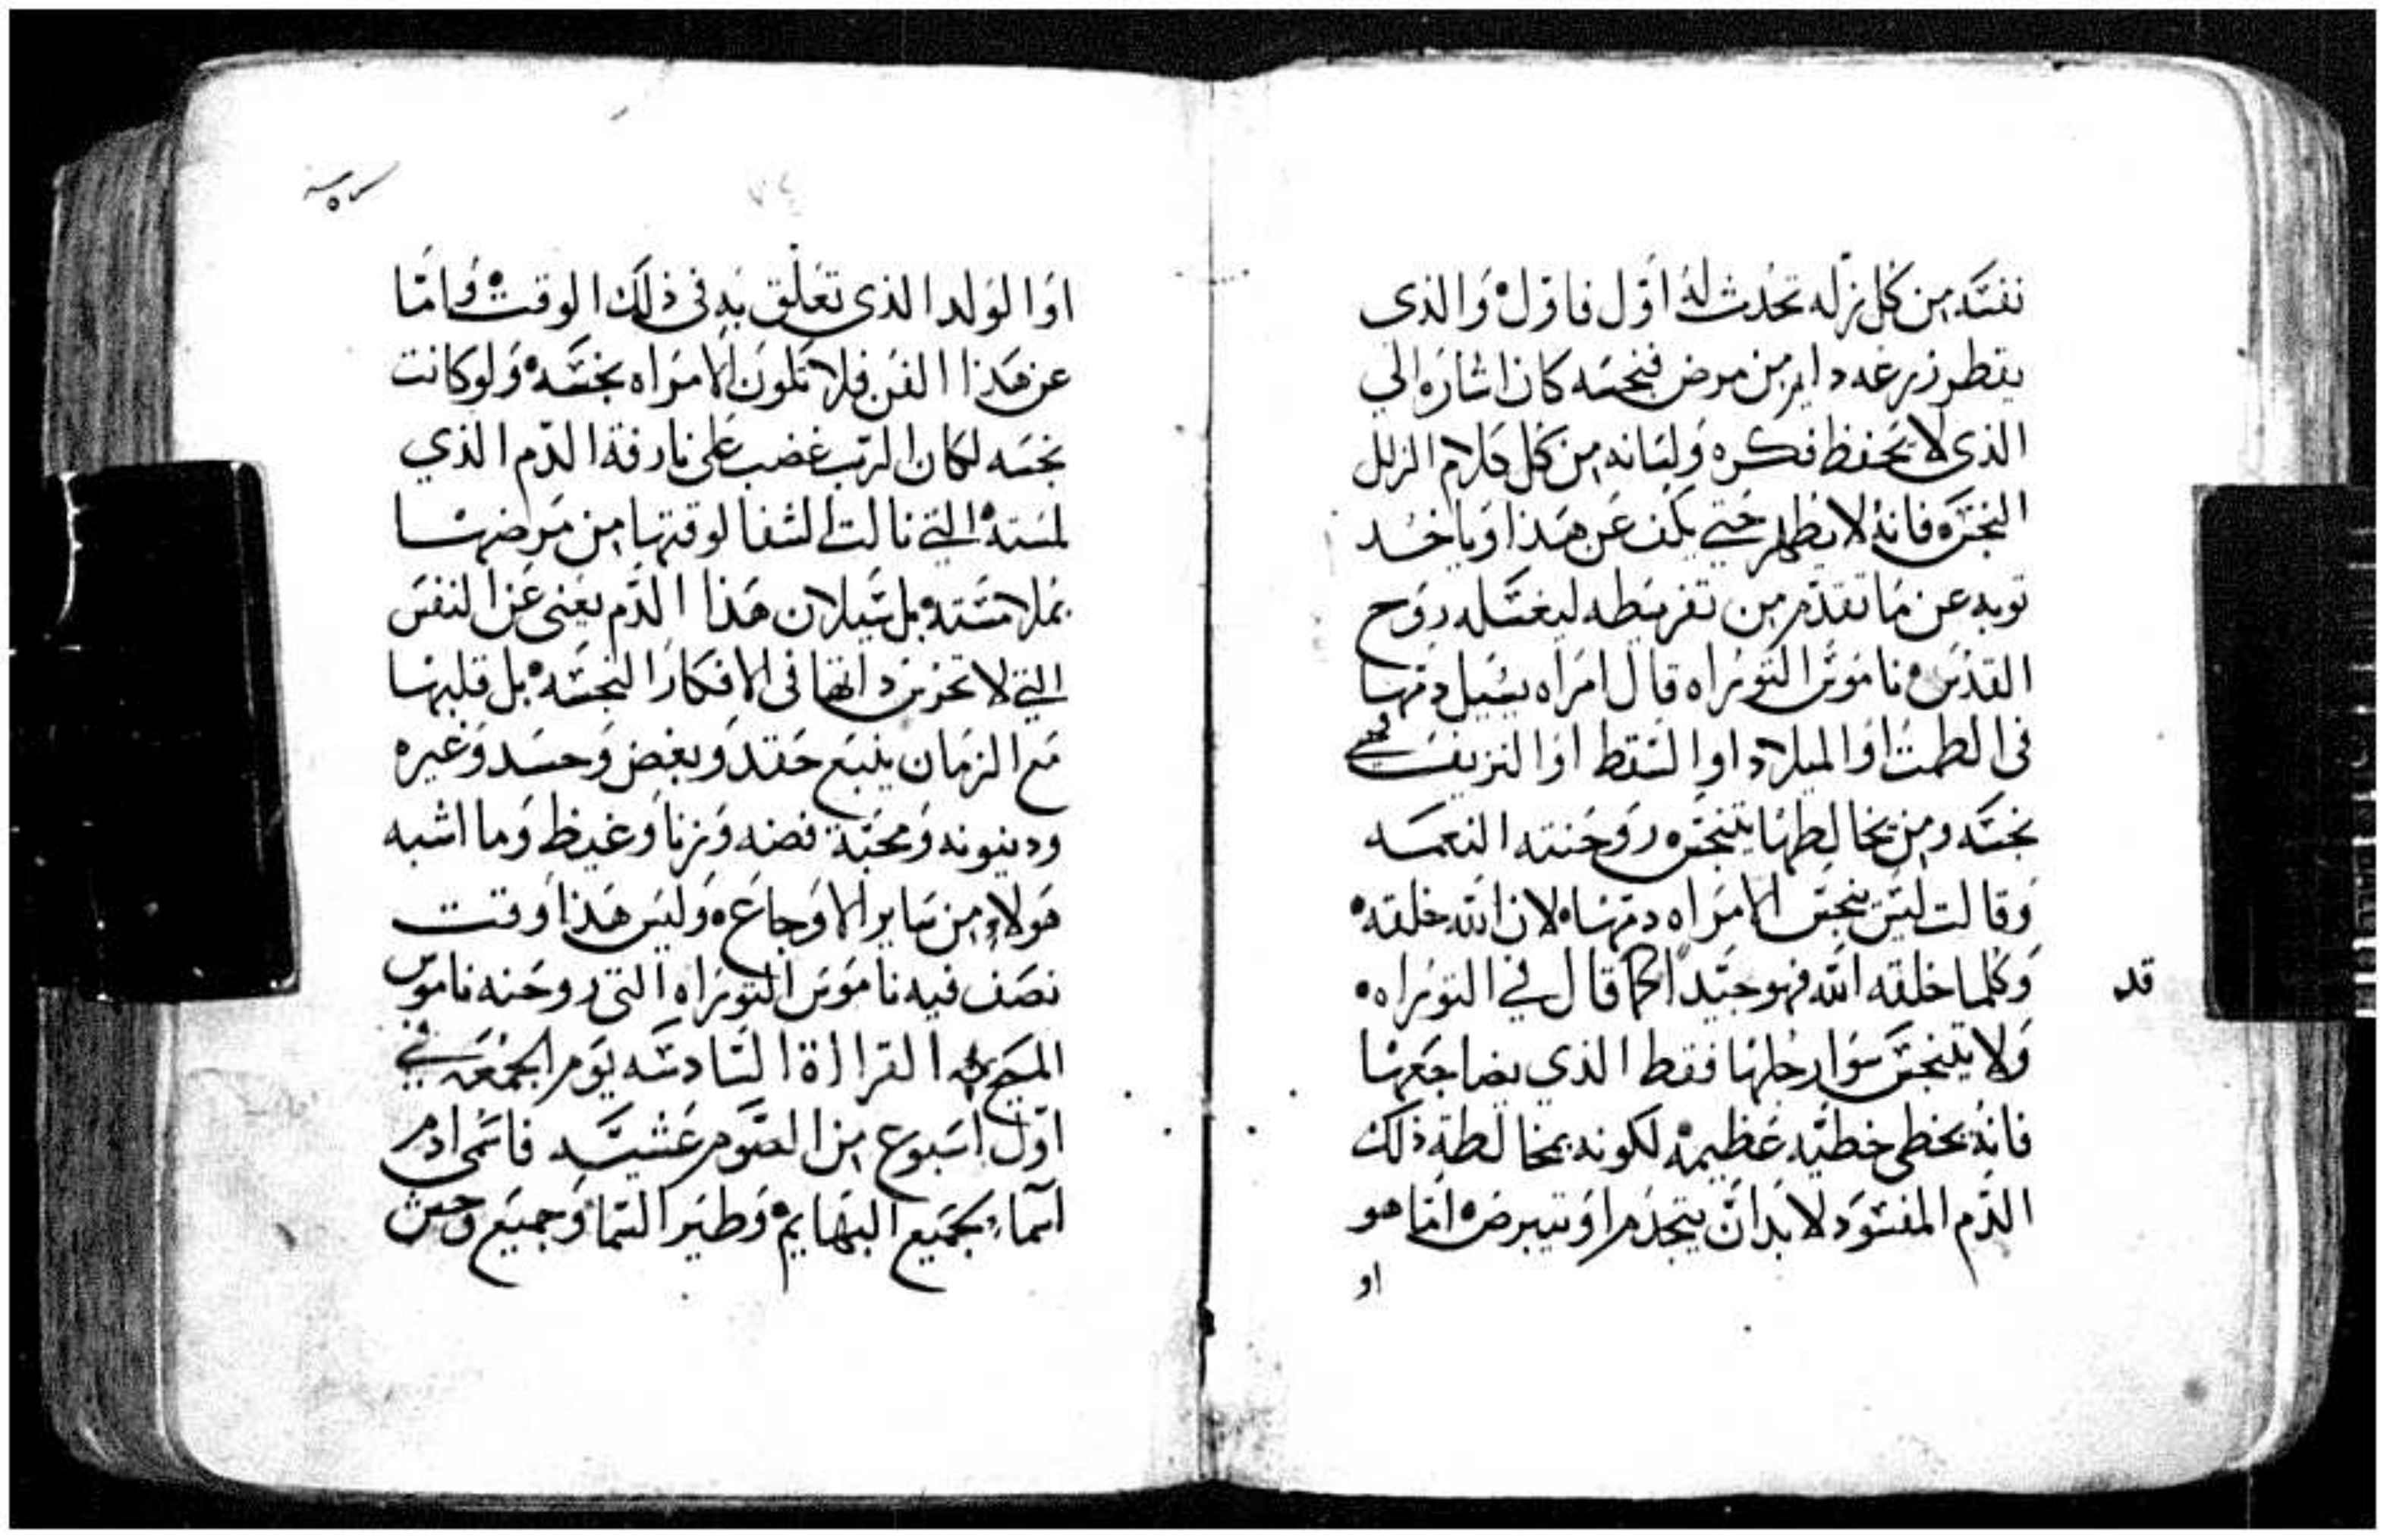 نفسه من كل زله تحدث له اول فاول والذى
يقطر زرعه دايم من مرض فنجسه كان اشاره الي
الذى لا يحفظ فكره ولسانه من كل كلام الزلل
النجس فانه لا يطهر حتي يكف عن هذا وياخد
توبه عن ما تقدم من تفريطه ليغسله روح
القدس ناموس التوراه قال امراه يسيل دمها
فى الطمت او الميلاد او السقط او النزيف فهي
نجسه ومن يخالطها يتنجس روحنته النعمه
وقالت ليس ينجس الامراه دمها لان الله خلقه
وكلما خلقه الله فهو جيد كما قال في التوراه
قد
ولا يتنجس سوا رجلها فقط الذي يضاجعها
فانه يخطى خطيه عظيمه لكونه بمخالطة ذلك
الدم المفسود لا بد ان يتجذم او يتبرص اما هو
او
او الولد الذى تعلق به فى ذلك الوقت واما
عن هذا الفن فلا تكون الامراه نجسه ولو كانت
نجسه لكان الرب غضب على نازفة الدم الذي
لمسته التي نالت الشفا لوقتها من مرضها
بملامسته بل سيلان هذا الدم يعنى عن النفس
التي لا تحزن داتها فى الافكار النجسه بل قلبها
مع الزمان ينبع حقد وبغض وحسد وغيره
ودينونه ومحبة فضه وزنا وغيظ وما اشبه
هولاء من ساير الاوجاع وليس هذا وقت
نصف فيه ناموس التوراه التى روحنه ناموس
المسيح القراة السادسه يوم الجمعه في
اول اسبوع من الصوم عشية فاسمى ادم
اسماء لجميع البهايم وطير السما وجميع وحش